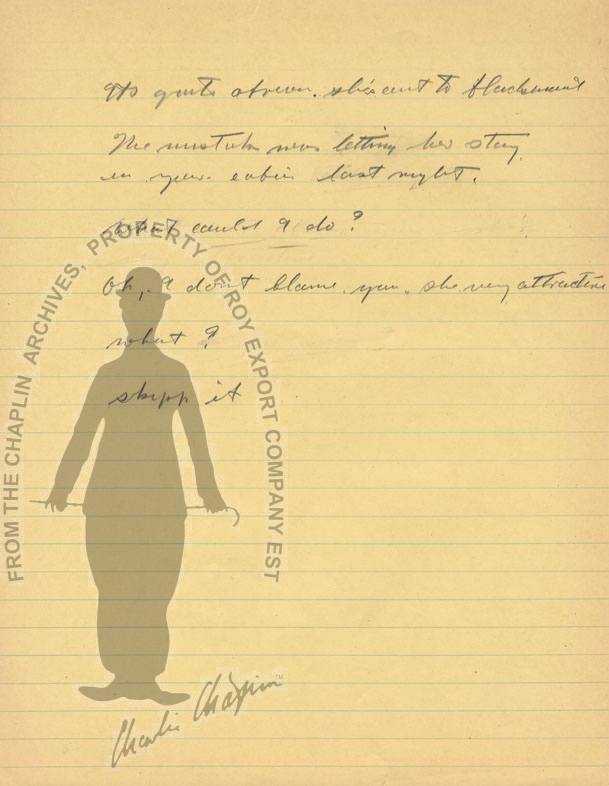 Its quite obvious. she's out to blackmail
The mistake was letting her stay
in your cabin last night.
what could I do?
Oh, I don't blame you. she very attractive
what?
skipp it
FROM THE CHAPLIN ARCHIVES, PROPERTY OF ROY EXPORT COMPANY EST
Charlie Chaplin
TM